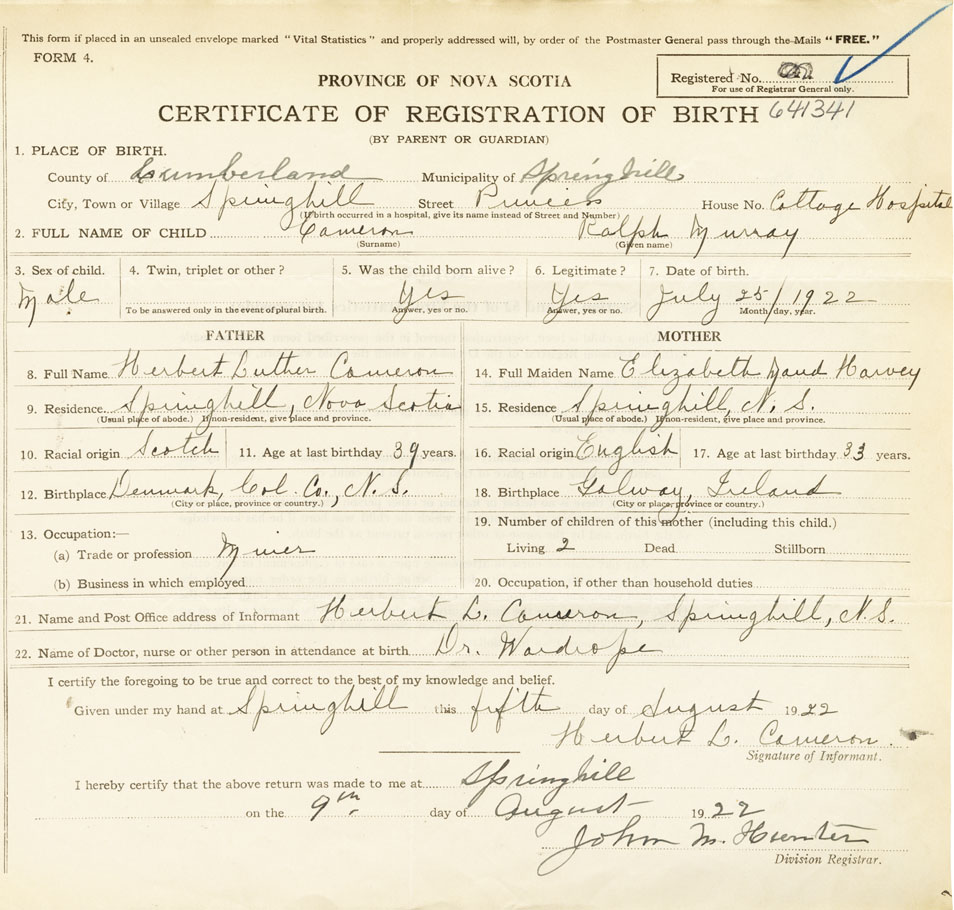 This form if placed in an unsealed envelope marked "Vital Statistics" and properly addressed will, by order of the Postmaster General pass through the Mails "FREE."
FORM 4.
Registered No.
For use of Registrar General only.
PROVINCE OF NOVA SCOTIA
CERTIFICATE OF REGISTRATION OF BIRTH 641341
(BY PARENT OR GUARDIAN)
1. PLACE OF BIRTH.
County of Cumberland Municipality of Springhill
City, Town or Village Springhill Street Princess House No. Cottage Hospital
(If birth occurred in a hospital, give its name instead of Street and Number)
2. FULL NAME OF CHILD Cameron Ralph Murray
(Surname) (Given name)
3. Sex of child. 4. Twin, triplet or other? 5. Was the child born alive? 6. Legitimate? 7. Date of birth.
Male Yes Yes July 25/1922
To be answered only in the event of plural birth. Answer, yes or no. Answer, yes or no. Month, day, year.
FATHER MOTHER
8. Full Name Herbert Luther Cameron 14. Full Maiden Name Elizabeth Maud Harvey
9. Residence Springhill, Nova Scotia 15. Residence Springhill, N.S.
(Usual place of abode.) If non-resident, give place and province. (Usual place of abode.) If non-resident, give place and province.
10. Racial origin Scotch 11. Age at last birthday 39 years. 16. Racial origin English 17. Age at last birthday 33 years.
12. Birthplace Denmark, Col. Co., N.S. 18. Birthplace Galway, Ireland
(City or place, province or country.) (City or place, province or country.)
13. Occupation:— 19. Number of children of this mother (including this child.)
(a) Trade or profession Miner Living 2 Dead Stillborn
(b) Business in which employed 20. Occupation, if other than household duties
21. Name and Post Office address of Informant Herbert L. Cameron, Springhill, N.S.
22. Name of Doctor, nurse or other person in attendance at birth Dr. Wardrope
I certify the foregoing to be true and correct to the best of my knowledge and belief.
Given under my hand at Springhill this fifth day of August 1922
Herbert L. Cameron.
Signature of Informant.
I hereby certify that the above return was made to me at Springhill
on the 9th day of August 1922
John M. Hunter
Division Registrar.